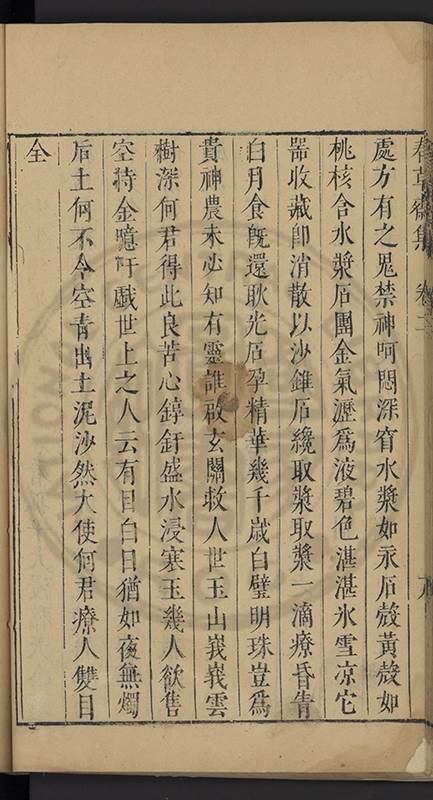 春草齋集 卷二
處方有之鬼禁神呵悶深窅水漿如汞石殼黃殼如
桃核含水漿石團金氣瀝爲液碧色湛湛氷雪凉它
噐收藏卽消散以沙錐石纔取漿取漿一滴療昏眚
白月食旣還耿光石孕精華幾千歳白璧明珠豈爲
貴神農未必知有靈誰啟玄關救人世玉山峩峩雲
樹深何君得此良苦心錞釪盛水浸寒玉幾人欲售
空持金噫吁戲世上之人云有目白日猶如夜無燭
后土何不令空青出土泥沙然大使何君療人雙目
全